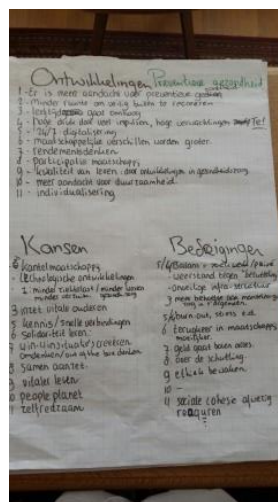 Ontwikkelingen Preventieve gezondheid
1 - Er is meer aandacht voor preventieve
2 - Minder ruimte om veilig buiten te recreëren
3 - leeftijd gaat omhoog
4 - hoge druk door veel impulsen, hoge verwachtingen Te!
5 - 24/7 digitalisering
6 - maatschappelijke verschillen worden groter
7 - rendementsdenken
8 - participatie maatschappij
9 - kwaliteit van leven : door ontwikkelingen in gezondheidszorg
10 - meer aandacht voor duurzaamheid
11 - individualisering
Kansen
kantelmaatschappij
technologische ontwikkelingen
1 minder ziektelast / minder
minder verzuim
3 inzet vitale ouderen
5 kennis / snelle verbindingen
6 solidariteit leren
7 win-win situaties creëren
omdenken / out of the box denken
8 samen aanzet
9 vitaler leven
10 people planet
11 zelfredzaam
Bedreigingen
5/4 Balans
- weerstand tegen "betutteling"
- onveilige infra-structuur
3 meer behoefte aan
5/4 burn-out, stress e.d.
6 terugkeer in maatschappij
moeilijker
7 geld gaat boven alles
8 over de schutting
9 ethiek bewaken
10 -
11 sociale cohesie afwezig